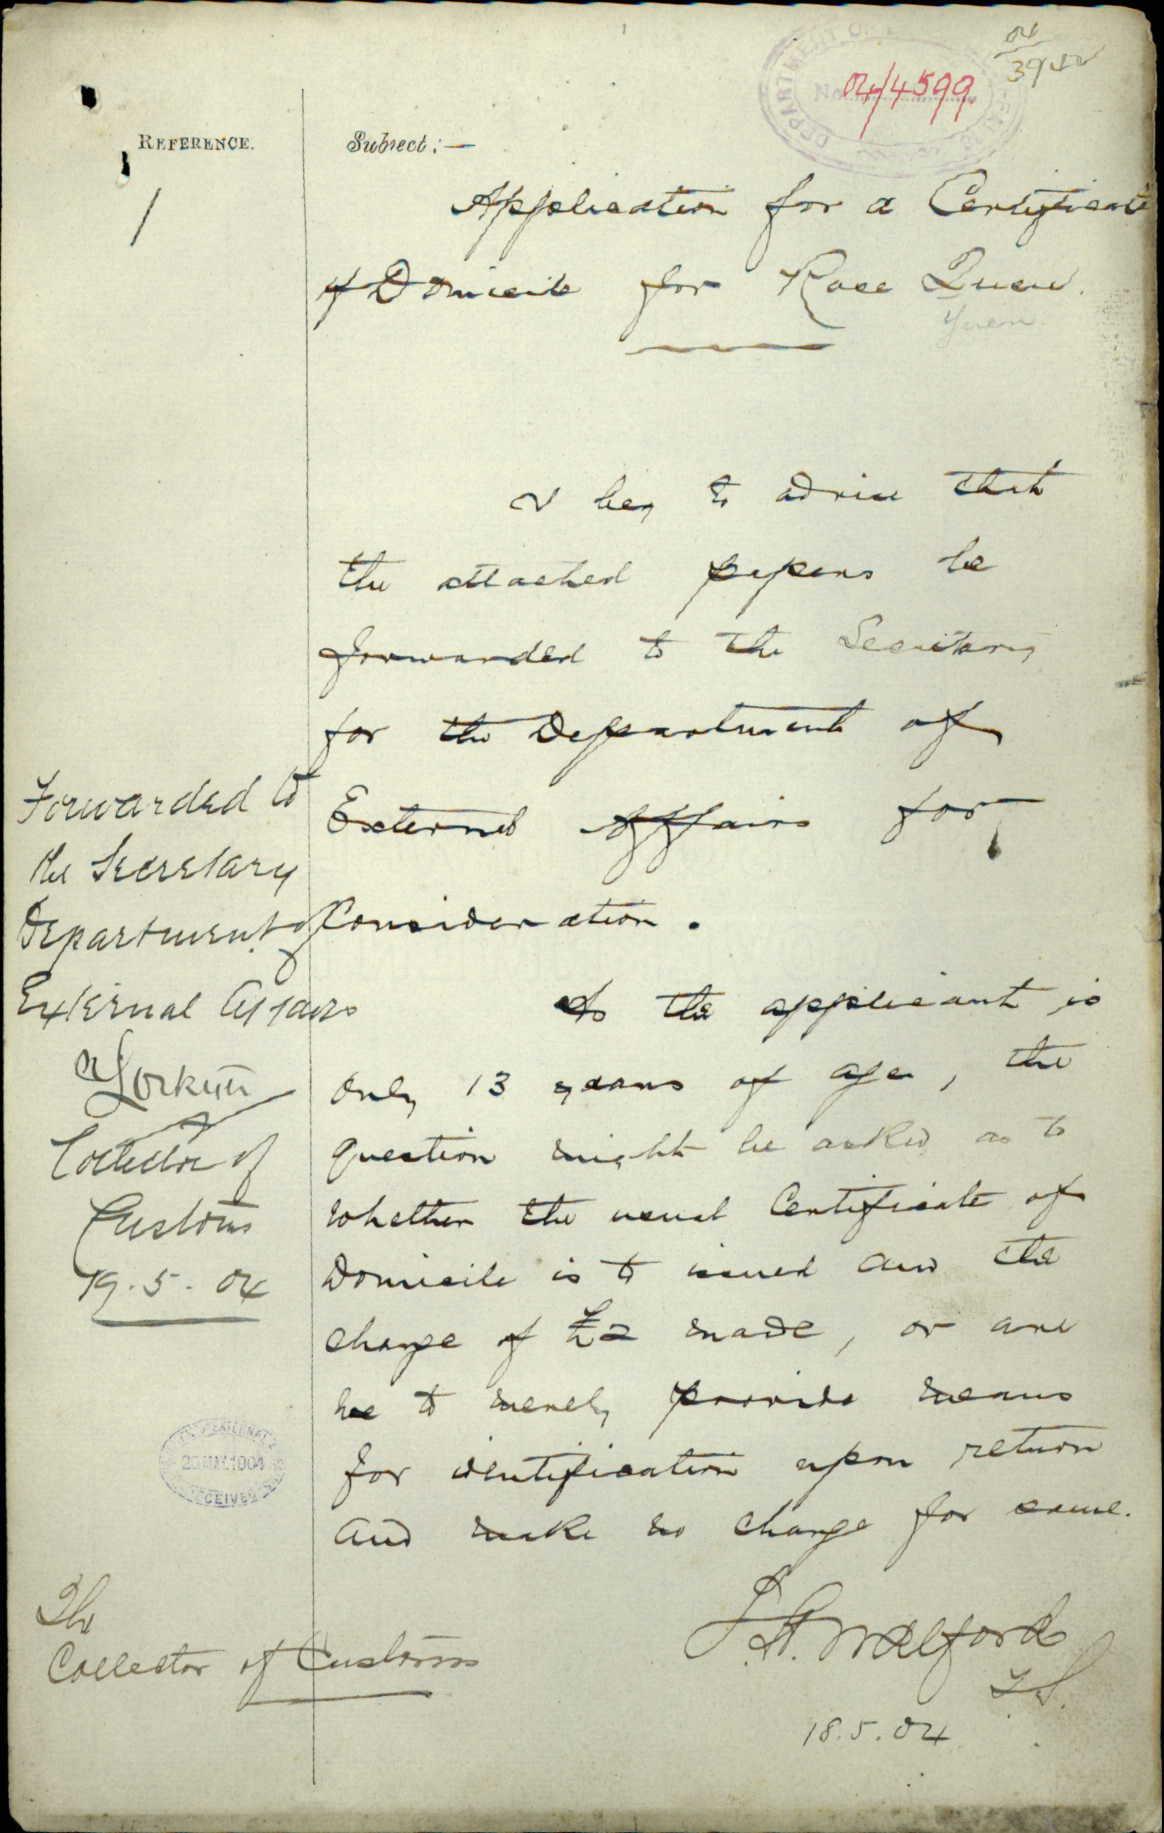 04
3942
DEPARTMENT OF
No. 04/4599
REFERENCE.
Subject:—
1
Application for a Certificate
of Domicile for Rose Quen.
Yuen
I beg to advise that
the attached papers be
forwarded to the Secretary
for the Department of
External Affairs for
Consideration.
As the applicant is
only 13 years of age, the
question might be asked as to
whether the usual Certificate of
Domicile is to issued and the
charge of £2 made, or are
we to merely provide means
for identification upon return
and make no charge for same.
J. H. Walford
18.5.04
Forwarded to
the Secretary
Department of
External Affairs
Collector of
Customs
19.5.04
RECEIVED
The
Collector of Customs